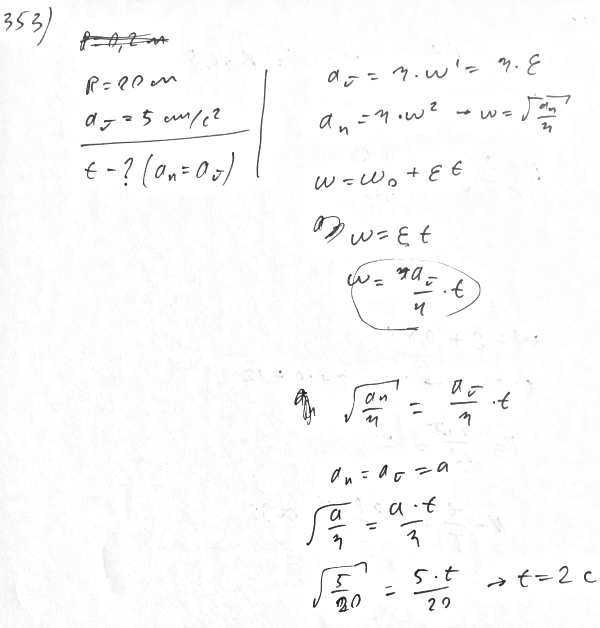 353)
R = 20 см
aτ = 5 см/с²
t - ? (an = aτ)
aτ = r · w' = r · ε
an = r · w² → w = √(an/r)
w = w₀ + ε t
w = ε t
w = aτ/r · t
√(an/r) = aτ/r · t
an = aτ = a
√(a/r) = a · t/r
√(5/20) = 5 · t/20 → t = 2 с